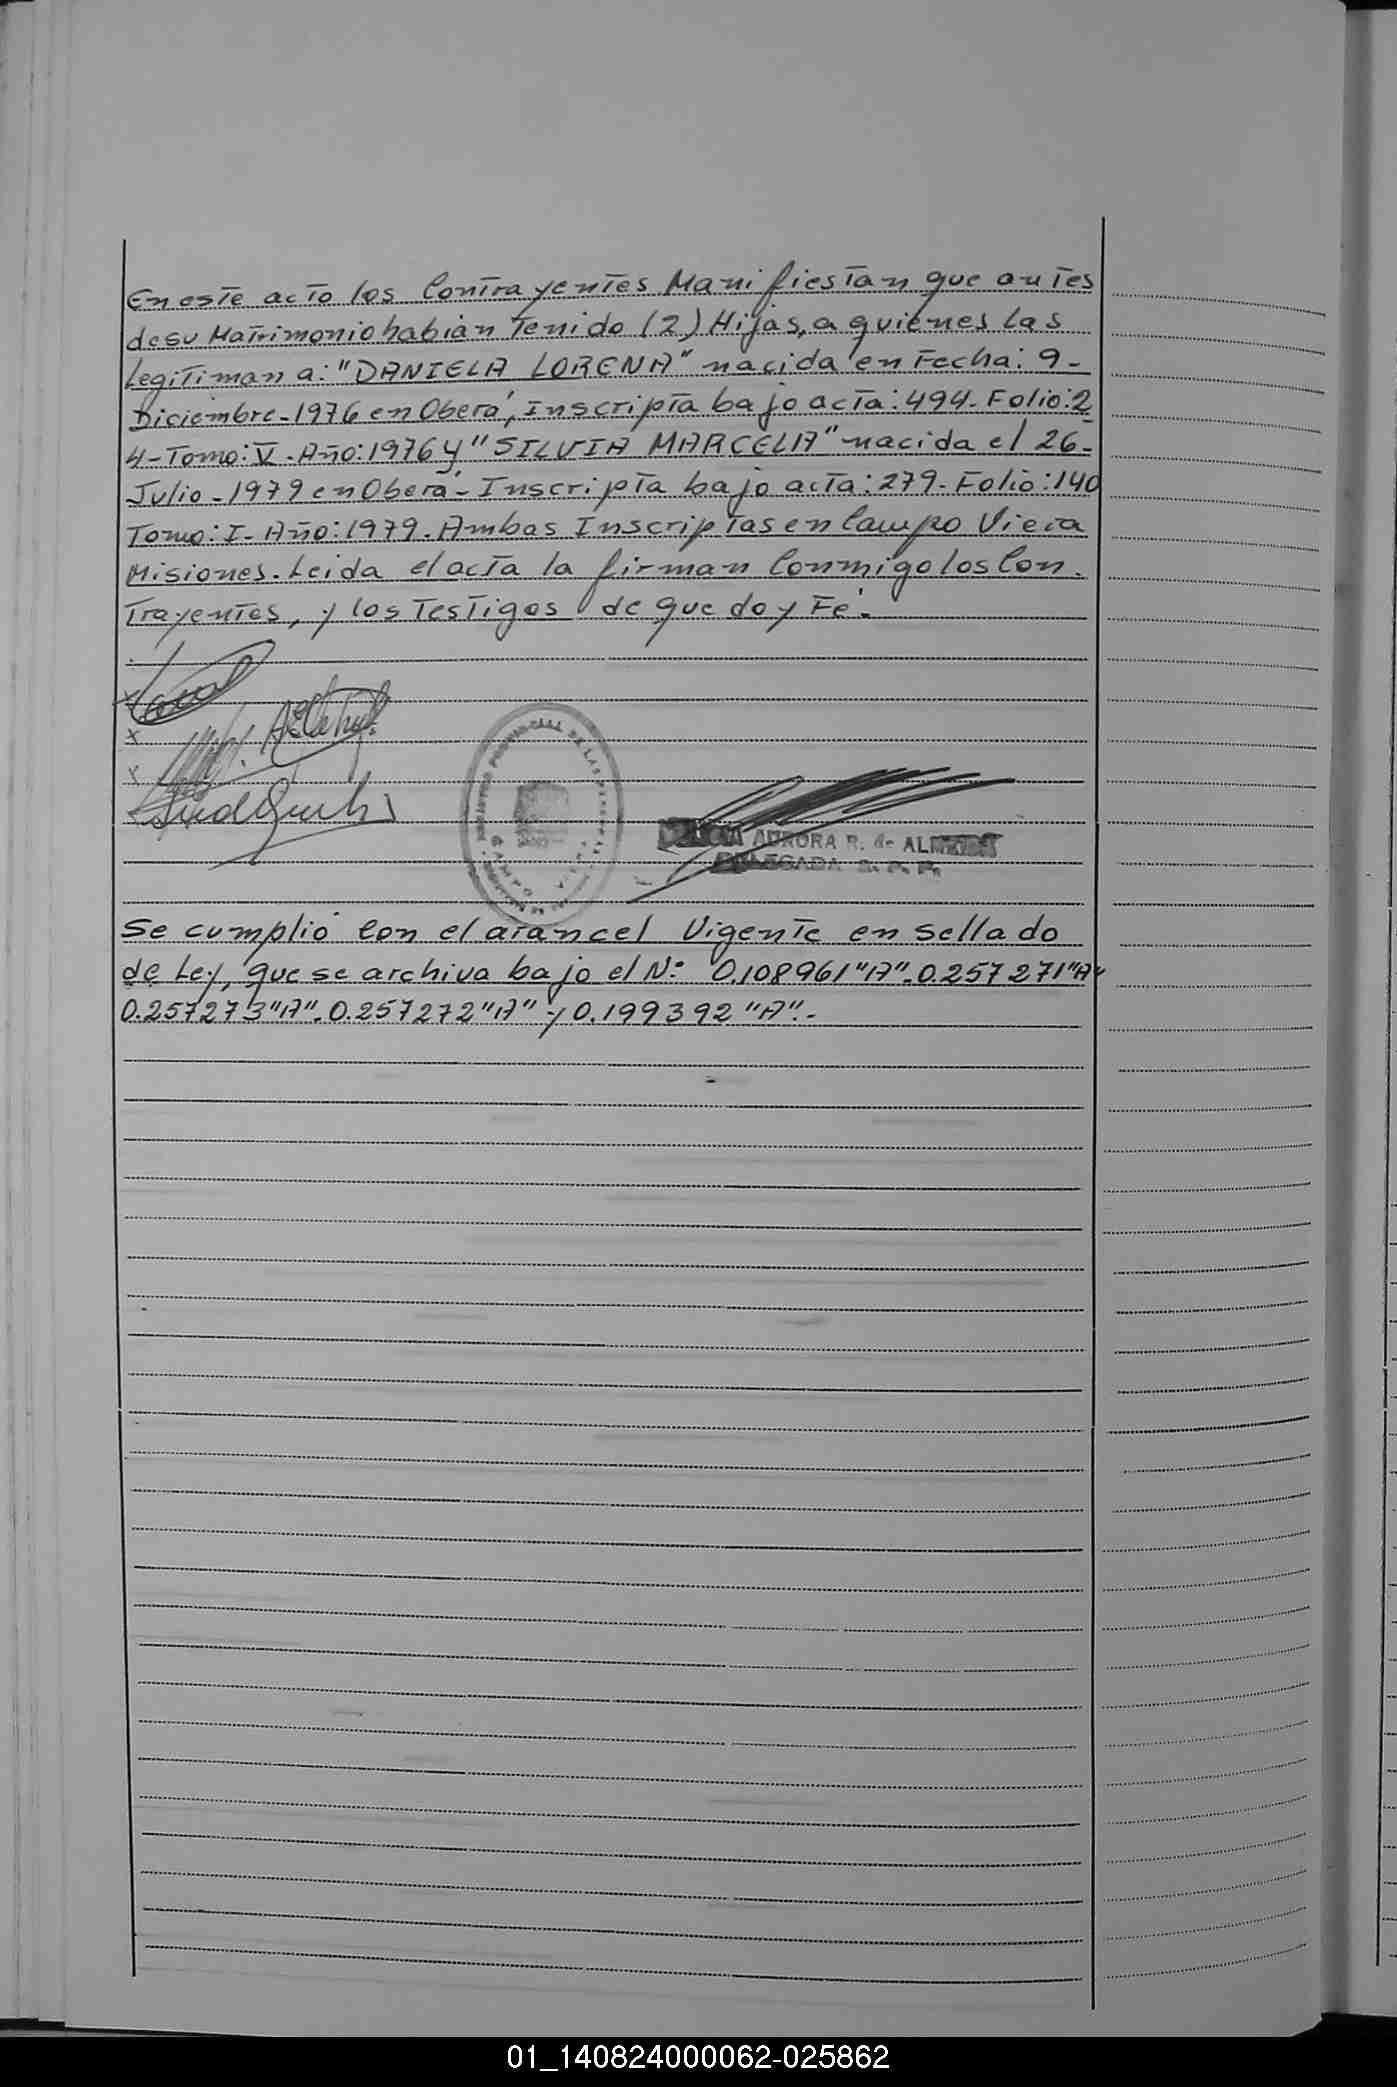 En este acto los Contrayentes Manifiestan que antes
de su Matrimonio habian Tenido (2) Hijas, a quienes las
Legitiman a: "DANIELA LORENA" nacida en Fecha: 9-
Diciembre-1976 en Oberá, Inscripta bajo acta: 494. Folio: 2
4-Tomo: V. Año: 1976 y "SILVIA MARCELA" nacida el 26-
Julio-1979 en Oberá- Inscripta bajo acta: 279- Folio: 140
Tomo: I- Año: 1979. Ambas Inscriptas en Campo Viera
Misiones. Leida el acta la firman Conmigo los Con-
Trayentes, y los Testigos de que doy Fé.-
AURORA R. de
DELEGADA R. P. P.
Se cumplió con el arancel Vigente en sellado
de Ley, que se archiva bajo el N:° 0.108961 "A". 0.257271 "A"
0.257273 "A". 0.257272 "A" y 0.199392 "A".-
01_140824000062-025862